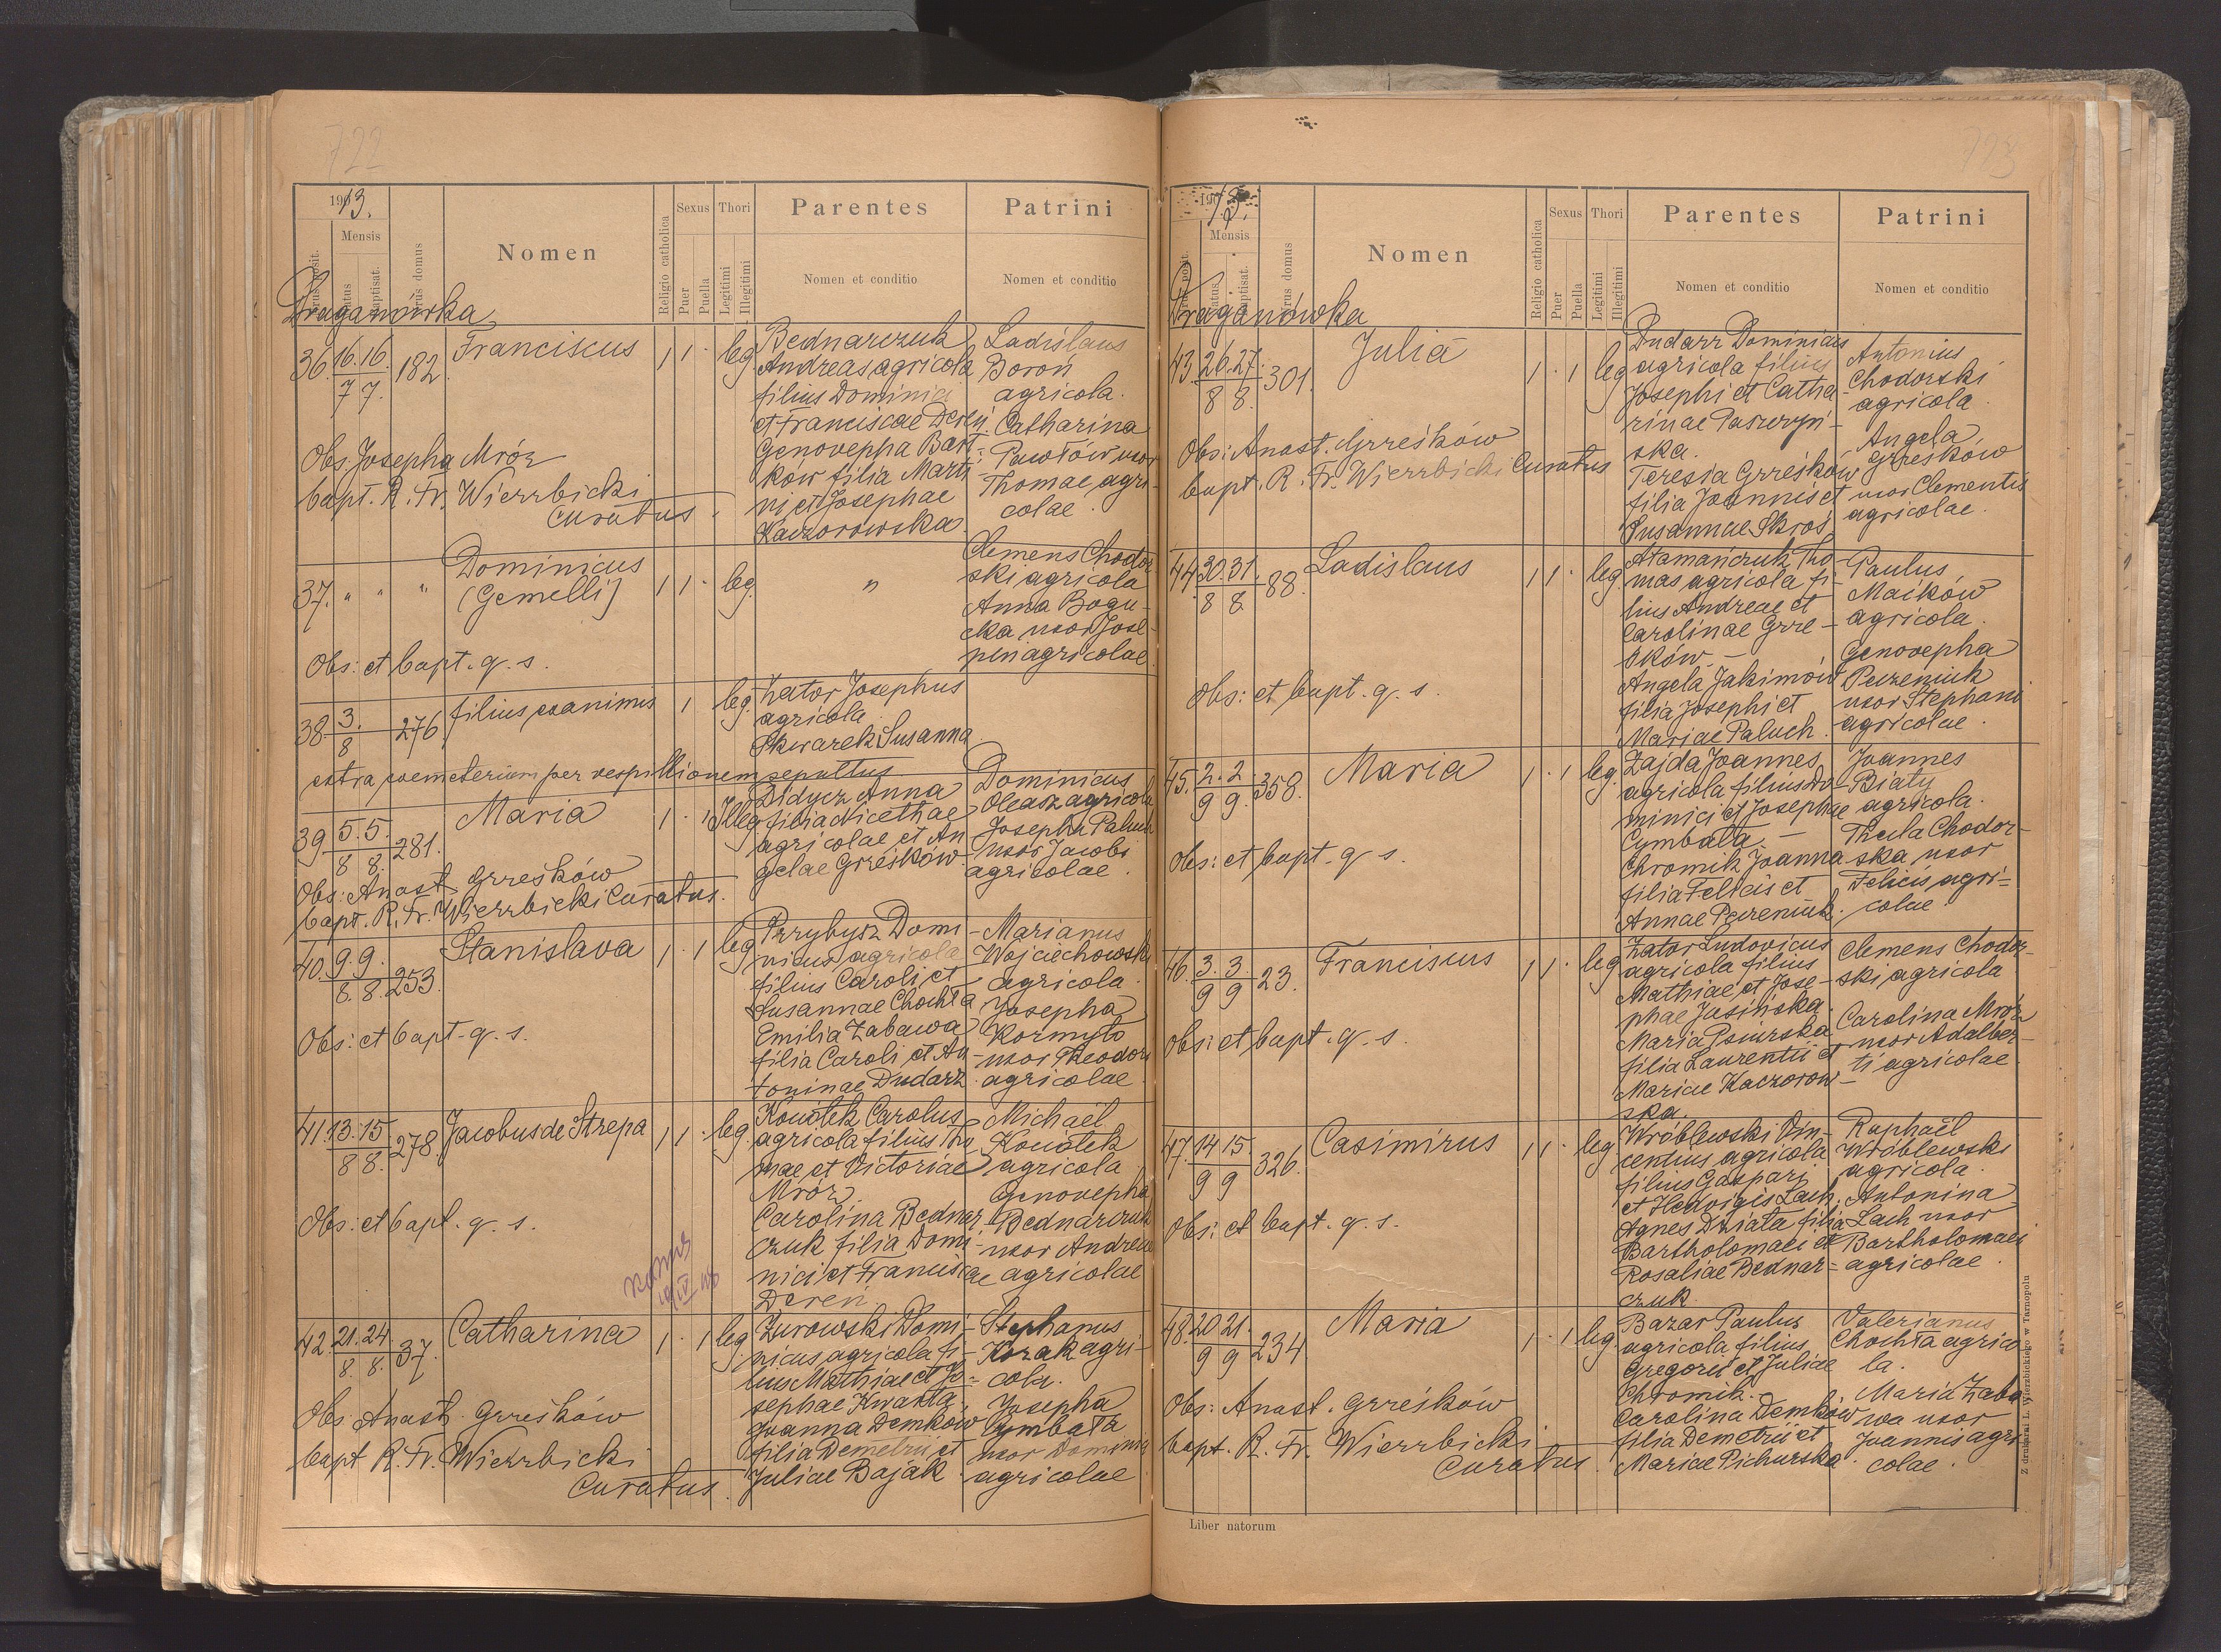 722
1913.
Mensis
Nomen
Religio catholica
Sexus
Puer
Puella
Thori
Legitimi
Illegitimi
Parentes
Nomen et conditio
Patrini
Nomen et conditio
Draganówka
36. 16. 16. 182. Franciscus 1 1 . leg.
7 7.
Bednarczuk
Andreas agricola
filius Dominici
et Franciscae Dereń.
Genovepha Bart-
ków filia Marti-
ni et Josephae
Kaczorowska.
Ladislaus
Boroń
agricola.
Catharina
Pawłów uxor
Thomae agri-
colae.
Obs. Josepha Mróz
bapt. R. Fr. Wierzbicki
Curatus.
37. " " " Dominicus 1 1 . leg.
(Gemelli)
"
Clemens Chodor
ski agricola
Anna Bogu-
cka uxor Jose-
phi agricolae
Obs: et bapt. q. s.
38. 3. 276 filius exanimis 1 leg.
8
Zator Josephus
agricola
Skwarek Susanna
extra coemeterium per vespillionem sepultus
39. 5. 5. 281. Maria 1 . 1 Illeg
8 8.
Didycz Anna
filia Nicethae
agricolae et An
gelae Grześków.
Dominicus
Oleasz agricola
Josepha Paluch
uxor Jacobi
agricolae.
Obs: Anast. Grześków
bapt. R. Fr. Wierzbicki Curatus.
40. 9. 9. 253. Stanislava 1 . 1 leg
8. 8.
Przybysz Domi-
nicus agricola
filius Caroli et
Susannae Chochła
Emilia Zabawa
filia Caroli et An-
toninae Dudarz.
Marianus
Wojciechowski
agricola.
Josepha
Kormyło
uxor Theodori
agricolae
Obs: et bapt. q. s.
41. 13. 15 278. Jacobus de Strepa 1 1 . leg.
8 8.
Koudlek Carolus
agricola filius Tho
mae et Victoriae
Mróz.
Carolina Bednar
czuk filia Domi-
nici et Franciscae
Dereń
Michaël
Koudlek
agricola
Genovepha
Bednarczuk
uxor Andreae
agricolae
Obs: et bapt. q. s.
42. 21. 24. 37. Catharina 1 . 1 leg
8. 8.
Żurowski Domi-
nicus agricola fi-
lius Mathiae et Jo-
sephae Kwarta.
Joanna Demków
filia Demetrii et
Juliae Bajak.
Stephanus
Kozak agri-
cola.
Josepha
Cymbała
uxor Dominici
agricolae
Obs. Anast. Grześków
bapt R. Fr. Wierzbicki
Curatus.
723
1913.
Mensis
Nomen
Religio catholica
Sexus
Puer
Puella
Thori
Legitimi
Illegitimi
Parentes
Nomen et conditio
Patrini
Nomen et conditio
Draganówka
43. 26. 27. 301. Julia 1 . 1 leg
8 8.
Dudarz Dominicus
agricola filius
Josephi et Catha-
rinae Paszczyń-
ska.
Teresia Grześków
filia Joannis et
Susannae Skroś
Antonius
Chodorski
agricola.
Angela
Grześków
uxor Clementis
agricolae.
Obs: Anast. Grześków
bapt. R. Fr. Wierzbicki Curatus
44. 30. 31. 88. Ladislaus 1 1 . leg.
8 8.
Atamańczuk Tho-
mas agricola fi-
lius Andreae et
Carolinae Grze-
śków. -
Angela Jakimów
filia Josephi et
Mariae Paluch.
Paulus
Maików
agricola.
Genovepha
Peczeniuk
uxor Stephani
agricolae.
Obs: et bapt. q. s.
45. 2. 2. 358. Maria 1 . 1 leg.
9 9.
Zajda Joannes
agricola filius Do-
minici et Josephae
Cymbała. -
Chromik Joanna
filia Felicis et
Annae Peczeniuk.
Joannes
Biały
agricola.
Thecla Chodor-
ska uxor
Felicis agri=
colae
Obs: et bapt. q. s.
46. 3. 3 23. Franciscus 1 1 . leg
9 9
Zator Ludovicus
agricola filius
Mathiae et Jose-
phae Jasińska.
Maria Psiurska
filia Laurentii et
Mariae Kaczorow-
ska.
Clemens Chodor-
ski agricola
Carolina Mróz
uxor Adalber-
ti agricolae.
Obs: et bapt. q. s.
47. 14 15. 326. Casimirus 1 1 . leg
9 9
Wróblewski Vin-
centius agricola
filius Gaspari
et Hedvigis Lach.
Agnes Działa filia
Bartholomaei et
Rosaliae Bednar=
czuk
Raphaël
Wróblewski
agricola.
Antonina
Lach uxor
Bartholomaei
agricolae.
Obs: et bapt. q. s.
48. 20 21. 234. Maria 1 . 1 leg.
9 9
Bazar Paulus
agricola filius
Gregorii et Juliae
Chromik.
Carolina Demków
filia Demetrii et
Mariae Pichurska.
Valerianus
Chochła agrico
la.
Maria Zaba
wa uxor
Joannis agri-
colae.
Obs: Anast. Grześków
bapt. R. Fr. Wierzbicki
Curatus.
Liber natorum
Z drukarni L. Wierzbickiego w Tarnopolu